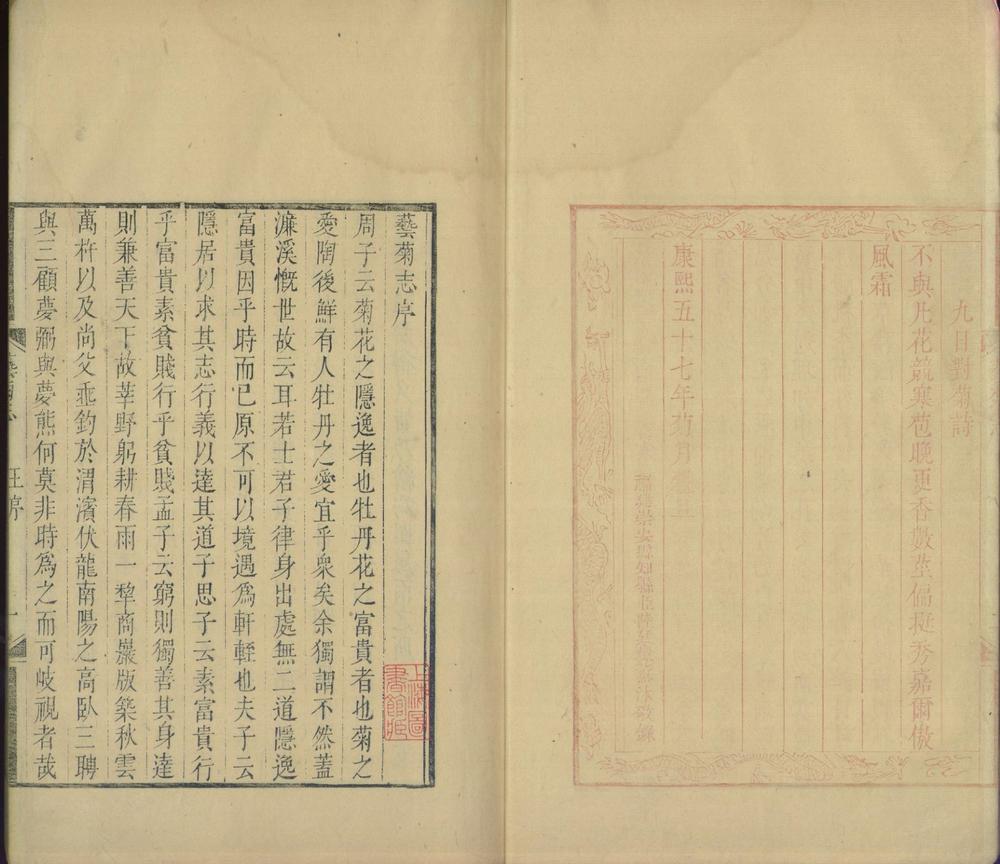 九日對菊詩
不與凡花競寒苞晚更香數莖偏挺秀嘉爾傲
風霜
康熙五十七年菊月
藝菊志序
周子云菊花之隱逸者也牡丹花之富貴者也菊之
愛陶後鮮有人牡丹之愛宜乎衆矣余獨謂不然蓋
濂溪慨世故云耳若士君子律身出處無二道隱逸
富貴因乎時而已原不可以境遇爲軒輊也夫子云
隱居以求其志行義以達其道子思子云素富貴行
乎富貴素貧賤行乎貧賤孟子云窮則獨善其身達
則兼善天下故莘野躬耕春雨一犂商巖版築秋雲
萬杵以及尚父垂釣於渭濱伏龍南陽之高臥三聘
與三顧夢弼與夢熊何莫非時爲之而可歧視者哉
汪序
一
上海圖
書館藏